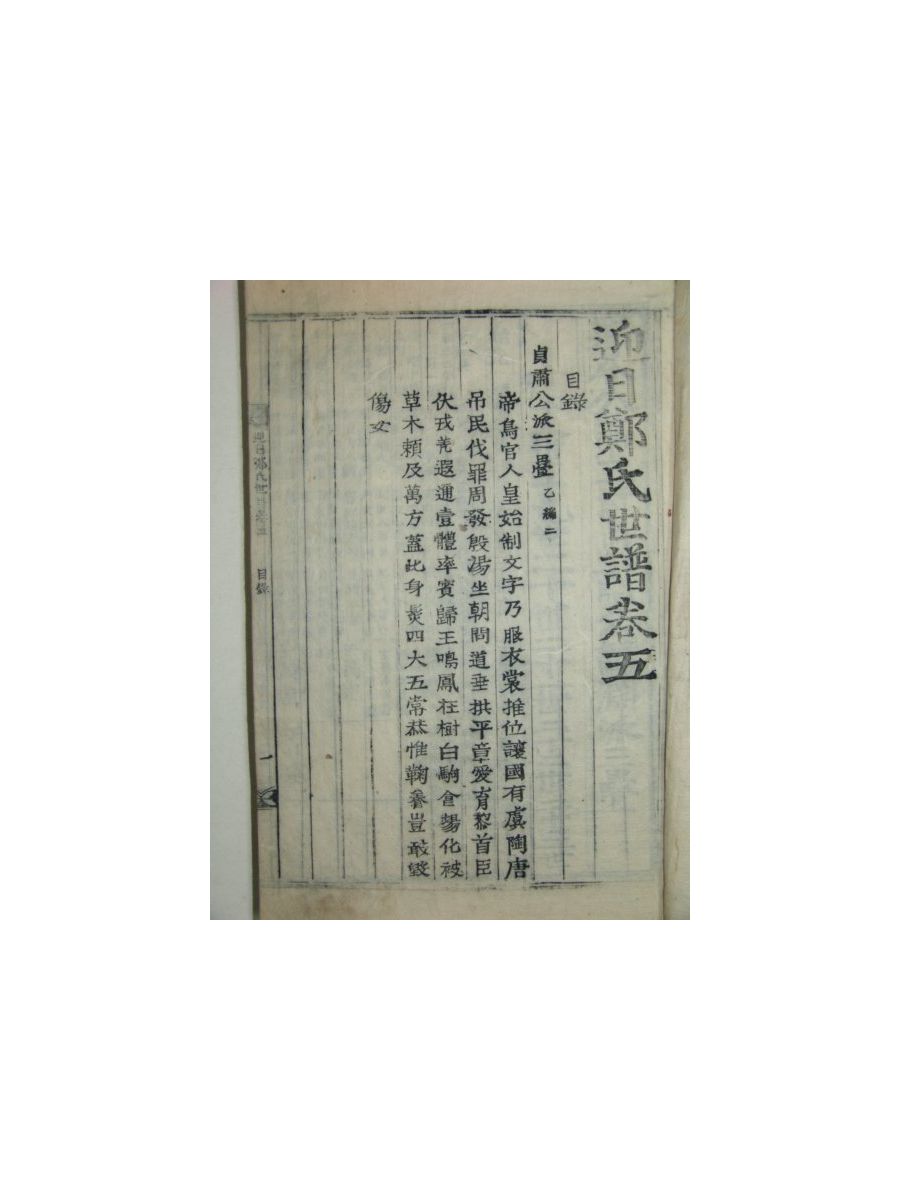 迎日鄭氏世譜卷五
目錄
貞肅公派三疊 乙編二
帝鳥官人皇始制文字乃服衣裳推位讓國有虞陶唐
吊民伐罪周發殷湯坐朝問道垂拱平章愛育黎首臣
伏戎羌遐邇壹體率賓歸王鳴鳳在樹白駒食場化被
草木賴及萬方蓋此身髮四大五常恭惟鞠養豈敢毀
傷女
迎日鄭氏世譜卷五 目錄 一